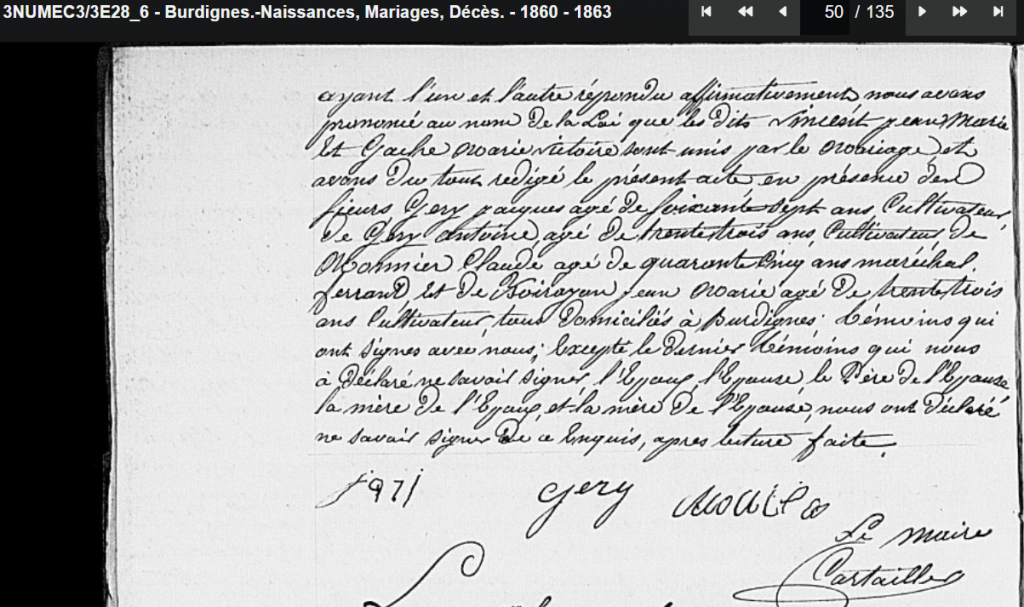 3NUMEC3/3E28_6 - Burdignes.-Naissances, Mariages, Décès. - 1860 - 1863
50 / 135
ayant l'un et l'autre répondu affirmativement nous avons
prononcé au nom de la Loi que les dits Vincent jean Marie
Et Gache Marie victoire sont unis par le Mariage et
avons du tout redigé le présent acte en présence des
sieurs Gery jacques agé de soixante sept ans Cultivateur,
de Gery Antoine, agé de trente trois ans, Cultivateur de
Monnier Claude agé de quarante Cinq ans maréchal
ferrant, Et de jean Marie agé de trente trois
ans Cultivateur, tous Domiciliés à Burdignes; témoins qui
ont signes avec nous; Excepté le dernier témoins qui nous
à déclaré ne savoir signer, l'Epoux, l'Epouse le Père de l'Epouse
la mère de l'Epoux, et la mère de l'Epouse, nous ont déclaré
ne savoir signer De ce Enquis, apres lecture faite.
gery
Le maire
Cartailler